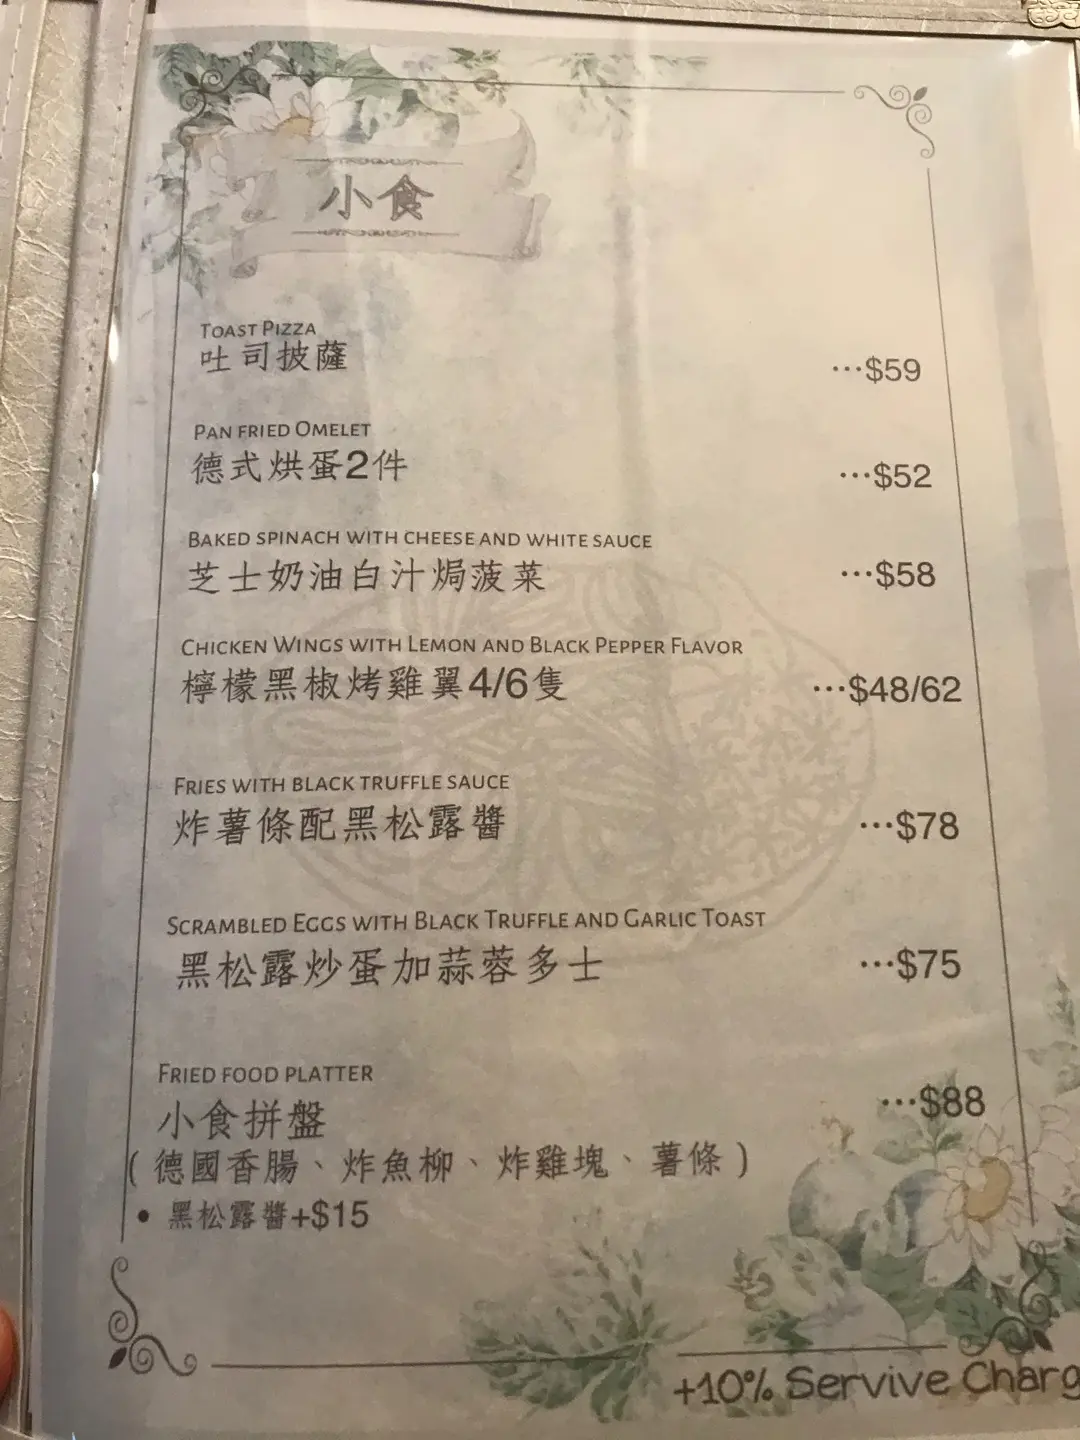 小食
TOAST PIZZA
吐司披薩 ...$59
PAN FRIED OMELET
德式烘蛋2件 ...$52
BAKED SPINACH WITH CHEESE AND WHITE SAUCE
芝士奶油白汁焗菠菜 ...$58
CHICKEN WINGS WITH LEMON AND BLACK PEPPER FLAVOR
檸檬黑椒烤雞翼4/6隻 ...$48/62
FRIES WITH BLACK TRUFFLE SAUCE
炸薯條配黑松露醬 ...$78
SCRAMBLED EGGS WITH BLACK TRUFFLE AND GARLIC TOAST
黑松露炒蛋加蒜蓉多士 ...$75
FRIED FOOD PLATTER
小食拼盤 ...$88
(德國香腸、炸魚柳、炸雞塊、薯條)
• 黑松露醬+$15
+10% Servive Charg